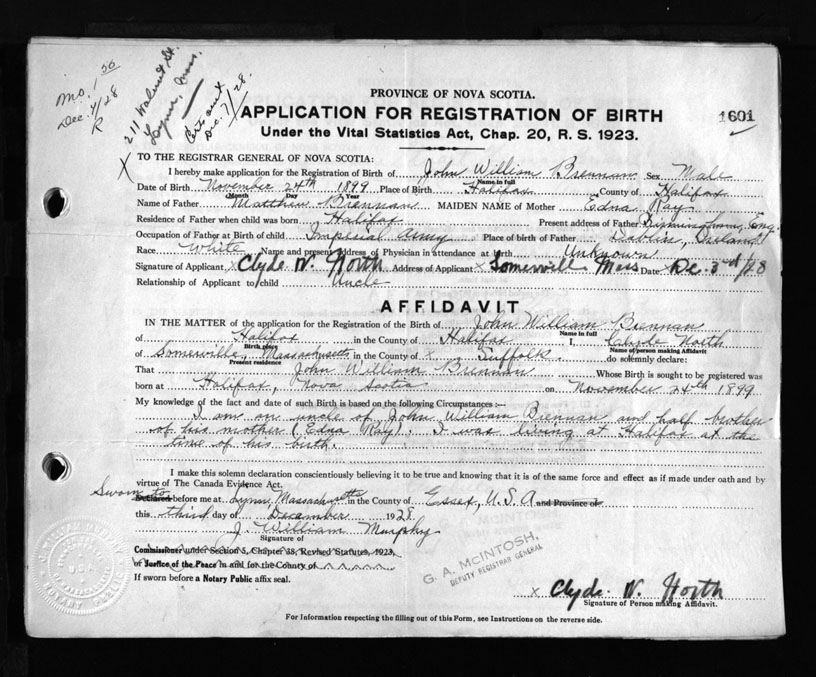 Mo. 1 50
Dec. 4/28
R
211 Walnut St.
Lynn, Mass.
Dec. 7/28.
PROVINCE OF NOVA SCOTIA.
APPLICATION FOR REGISTRATION OF BIRTH 1601
Under the Vital Statistics Act, Chap. 20, R. S. 1923.
X TO THE REGISTRAR GENERAL OF NOVA SCOTIA:
I hereby make application for the Registration of Birth of John William Brennan Sex Male
Name in full
Date of Birth November 24th 1899 Place of Birth Halifax County of Halifax
Month Day Year
Name of Father Matthew Brennan MAIDEN NAME of Mother Edna Ray
Residence of Father when child was born Halifax Present address of Father Birmingham, Eng.
Occupation of Father at Birth of child Imperial Army Place of birth of Father Dublin, Ireland
Race White Name and present address of Physician in attendance at Birth Unknown
Signature of Applicant x Clyde W. North Address of Applicant x Somerville Mass Date Dec. 3rd/28
Relationship of Applicant to child Uncle
AFFIDAVIT
IN THE MATTER of the application for the Registration of the Birth of John William Brennan
Name in full
of Halifax in the County of Halifax I Clyde North
Birth place Name of person making Affidavit
of Somerville, Massachusetts in the County of x Suffolk do solemnly declare:
Present residence
That John William Brennan Whose Birth is sought to be registered was
born at Halifax, Nova Scotia on November 24th 1899
My knowledge of the fact and date of such Birth is based on the following Circumstances :—
I am an uncle of John William Brennan and half brother
of his mother (Edna Ray). I was living at Halifax at the
time of his birth.
I make this solemn declaration conscientiously believing it to be true and knowing that it is of the same force and effect as if made under oath and by
virtue of The Canada Evidence Act.
Sworn to
Declared before me at Lynn Massachusetts in the County of Essex, U.S.A and Province of
this third day of December 1928
J. William Murphy
Signature of
Commissioner under Section 5, Chapter 38, Revised Statutes, 1923,
or Justice of the Peace in and for the County of
If sworn before a Notary Public affix seal.
G. A. McINTOSH,
DEPUTY REGISTRAR GENERAL
x Clyde W. North
Signature of Person making Affidavit.
For Information respecting the filling out of this Form, see Instructions on the reverse side.